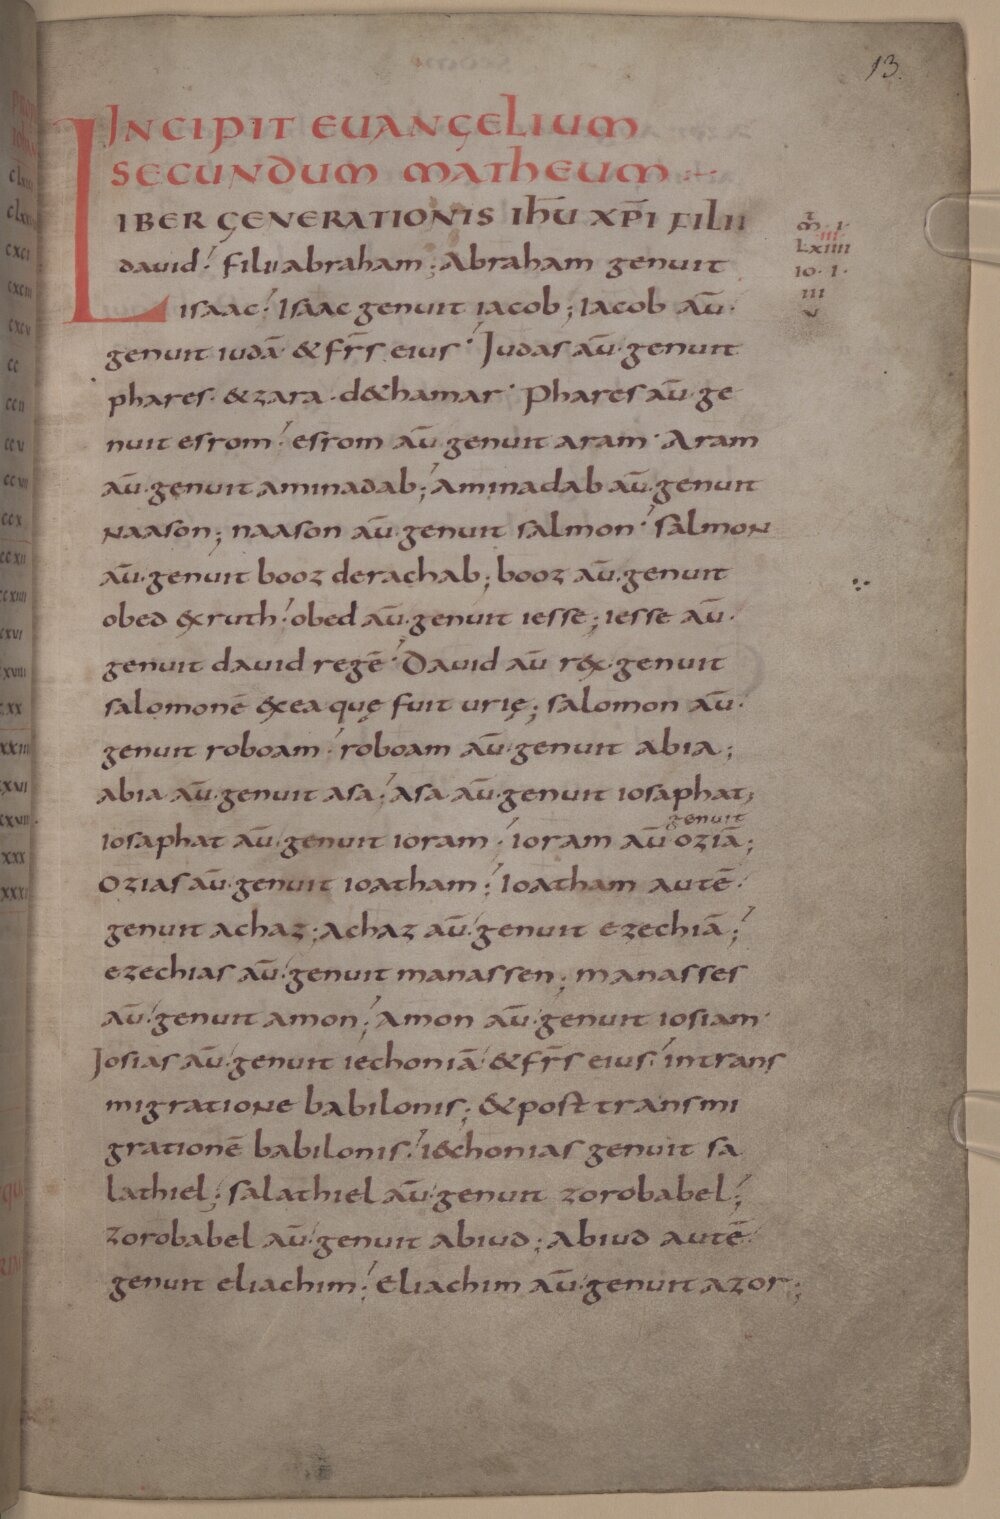 13.
INCIPIT EUANGELIUM
SECUNDUM MATHEUM
LIBER GENERATIONIS IHŪ XPI FILII
dauid; filii abraham; Abraham genuit
isaac; Isaac genuit iacob; Iacob aū·
genuit iudā &frs eius· Iudas aū·genuit
phares· &zara· de&hamar· Phares aū·ge
nuit esrom; esrom aū·genuit aram· Aram
aū·genuit aminadab; Aminadab aū·genuit
Naason; naason aū·genuit salmon· salmon
aū·genuit booz derachab; booz aū·genuit
obed exruth; obed aū·genuit iesse; iesse aū·
genuit dauid regē· Dauid aū rex·genuit
salomonē exea quę fuit urię; salomon aū·
genuit roboam· roboam aū·genuit abia;
abia aū·genuit asa; Asa aū·genuit iosaphat;
iosaphat aū·genuit ioram· ioram aū genuit oziā;
Ozias aū·genuit ioatham; Ioatham autē·
genuit achaz; Achaz aū·genuit ezechiā;
ezechias aū·genuit manassen; manasses
aū·genuit amon; Amon aū·genuit iosiam·
Iosias aū·genuit iechoniā &frs eius· intrans
migratione babilonis; &post transmi
grationē babilonis; i&chonias genuit sa
lathiel; salathiel aū·genuit zorobabel;
zorobabel aū·genuit abiud; Abiud autē·
genuit eliachim; Eliachim aū·genuit azor;
m·I·
III
LXIIII
IO·I·
III
V
clx
cxci
cc
ccx
xxx